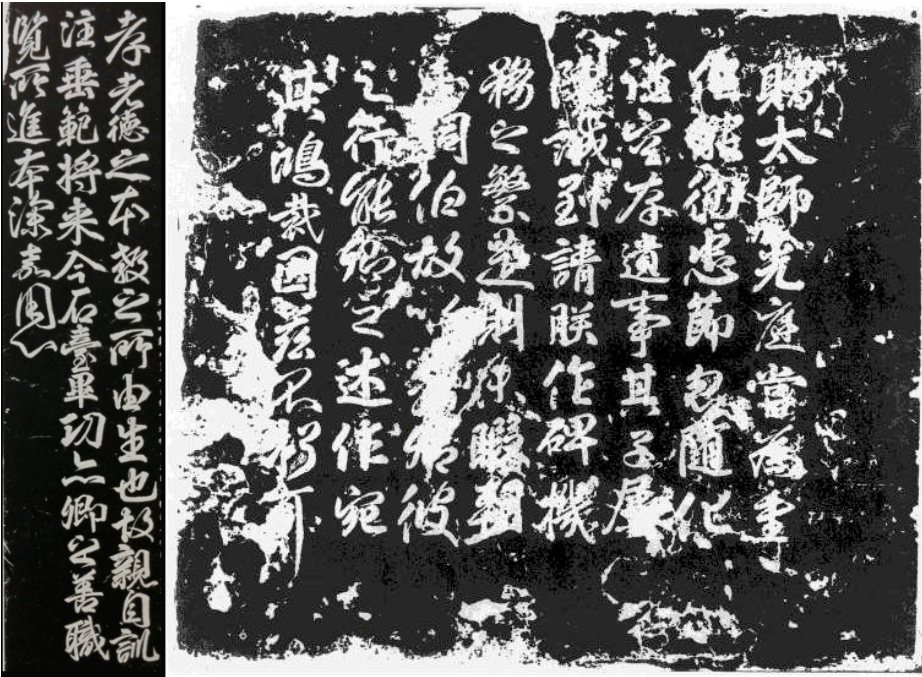 贈太師光庭嘗為重
任能徇忠節忽隨化
空存遺事其子屢
陳誠到請朕作碑機
務之繁是則未暇朝
同伯故以卿彼
之行能卿之述作宛
其鴻裁因茲不朽耳
孝者德之本教之所由生也故親自訓
注垂範將来今石臺畢功亦卿之善職
覽所進本深嘉用心